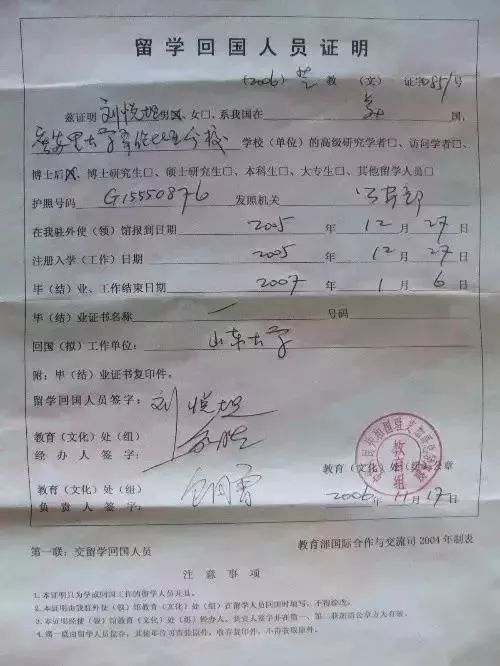 留学回国人员证明
(2006) 芝 教 (文) 证字0851号
兹证明 刘悦坦 男☒、女□,系我国在 美 国,
大学 分校 学校(单位)的高级研究学者□、访问学者□、
博士后☒、博士研究生□、硕士研究生□、本科生□、大专生□、其他留学人员□
护照号码 G15550876 发照机关
在我驻外使(领)馆报到日期 2005 年 12 月 27 日
注册入学(工作)日期 2005 年 12 月 27 日
毕(结)业、工作结束日期 2007 年 1 月 6 日
毕(结)业证书名称 一 号码
回国(拟)工作单位: 山东大学
附:毕(结)业证书复印件。
留学回国人员签字: 刘悦坦
教育(文化)处(组)
经办人签字:
教育(文化)处(组)
负责人签字:
教育(文化)处(组)公章
教育组
2006年11月17日
第一联:交留学回国人员
教育部国际合作与交流司2004年制表
注意事项
1.本证明只为学成回国工作的留学人员开具。
2.本证明由我驻外使(领)馆教育(文化)处(组)在留学人员回国时填写,不得涂改。
3.本证明经使(领)馆教育(文化)处(组)经办人、负责人签字并在第一、第二联加盖公章方为有效。
4.第一联由留学人员保存,其他单位可查验原件,收存复印件,不得收取原件。